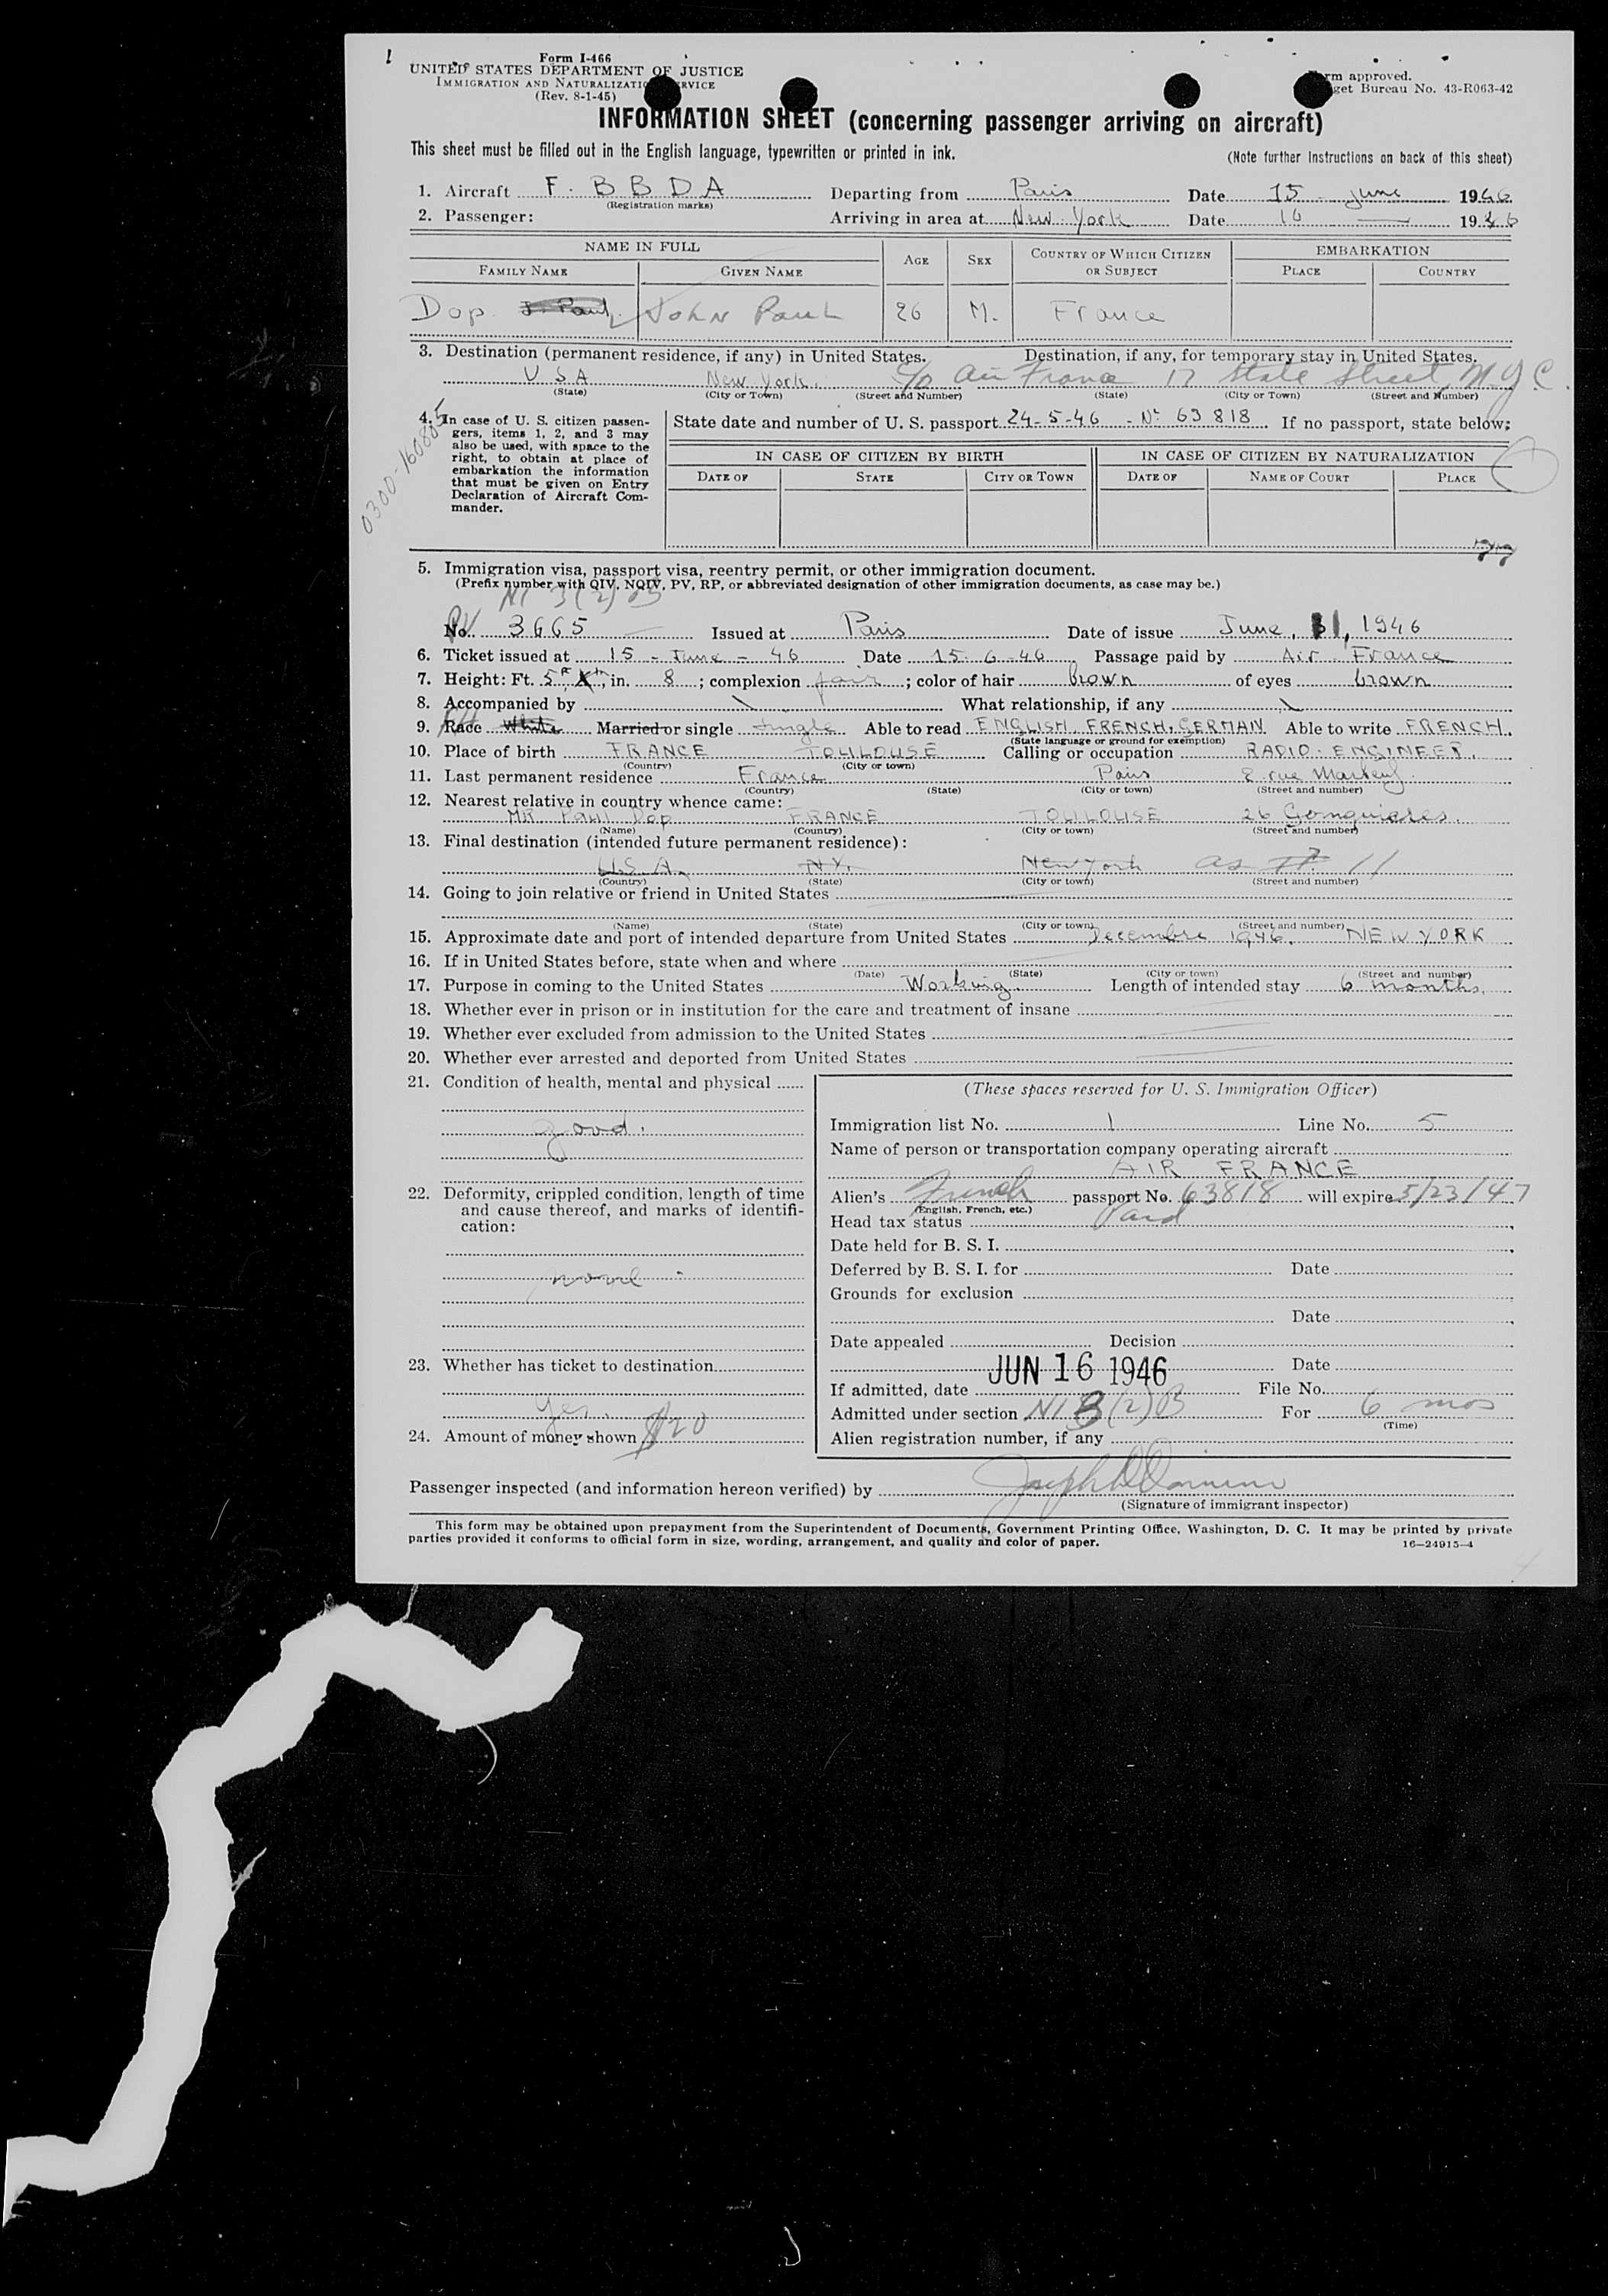 1 Form I-466
UNITED STATES DEPARTMENT OF JUSTICE
IMMIGRATION AND NATURALIZATION SERVICE
(Rev. 8-1-45)
Form approved.
Budget Bureau No. 43-R063-42
INFORMATION SHEET (concerning passenger arriving on aircraft)
This sheet must be filled out in the English language, typewritten or printed in ink. (Note further instructions on back of this sheet)
1. Aircraft F. B B D A Departing from Paris Date 15 - June 1946
(Registration marks)
2. Passenger: Arriving in area at New York Date 16 1946
NAME IN FULL AGE SEX COUNTRY OF WHICH CITIZEN OR SUBJECT EMBARKATION
FAMILY NAME GIVEN NAME PLACE COUNTRY
Dop J. Paul John Paul 26 M. France
3. Destination (permanent residence, if any) in United States. Destination, if any, for temporary stay in United States.
U S A New York. c/o Air France 17 State Street, N.Y.C.
(State) (City or Town) (Street and Number) (State) (City or Town) (Street and Number)
0300-160885
4. In case of U. S. citizen passengers, items 1, 2, and 3 may also be used, with space to the right, to obtain at place of embarkation the information that must be given on Entry Declaration of Aircraft Commander.
State date and number of U. S. passport 24-5-46 - No 63 818 If no passport, state below:
IN CASE OF CITIZEN BY BIRTH IN CASE OF CITIZEN BY NATURALIZATION
DATE OF STATE CITY OR TOWN DATE OF NAME OF COURT PLACE
5. Immigration visa, passport visa, reentry permit, or other immigration document.
(Prefix number with QIV, NQIV, PV, RP, or abbreviated designation of other immigration documents, as case may be.)
NI 3(2)
PV No. 3665 Issued at Paris Date of issue June, 11, 1946
6. Ticket issued at 15 - June - 46 Date 15-6-46 Passage paid by Air France
7. Height: Ft. 5, in. 8; complexion fair; color of hair brown of eyes brown
8. Accompanied by What relationship, if any
9. Race White Married or single Single Able to read ENGLISH, FRENCH, GERMAN Able to write FRENCH.
(State language or ground for exemption)
10. Place of birth FRANCE TOULOUSE Calling or occupation RADIO-ENGINEER.
(Country) (City or town)
11. Last permanent residence France Paris 2 rue
(Country) (State) (City or town) (Street and number)
12. Nearest relative in country whence came:
MR Paul Dop FRANCE TOULOUSE 26
(Name) (Country) (City or town) (Street and number)
13. Final destination (intended future permanent residence):
U.S.A. N.Y. New York as # 11
(Country) (State) (City or town) (Street and number)
14. Going to join relative or friend in United States
(Name) (State) (City or town) (Street and number)
15. Approximate date and port of intended departure from United States Decembre 1946. NEW YORK
16. If in United States before, state when and where
(Date) (State) (City or town) (Street and number)
17. Purpose in coming to the United States Working. Length of intended stay 6 months.
18. Whether ever in prison or in institution for the care and treatment of insane
19. Whether ever excluded from admission to the United States
20. Whether ever arrested and deported from United States
21. Condition of health, mental and physical
good.
22. Deformity, crippled condition, length of time and cause thereof, and marks of identification:
none -
23. Whether has ticket to destination
yes.
24. Amount of money shown $20
(These spaces reserved for U. S. Immigration Officer)
Immigration list No. 1 Line No. 5
Name of person or transportation company operating aircraft
AIR FRANCE
Alien's French passport No. 63818 will expire 5/23/47
(English, French, etc.)
Head tax status Paid
Date held for B. S. I.
Deferred by B. S. I. for Date
Grounds for exclusion
Date
Date appealed Decision
Date
JUN 16 1946
If admitted, date File No.
Admitted under section NI 3(2)B For 6 mos
(Time)
Alien registration number, if any
Passenger inspected (and information hereon verified) by
(Signature of immigrant inspector)
This form may be obtained upon prepayment from the Superintendent of Documents, Government Printing Office, Washington, D. C. It may be printed by private
parties provided it conforms to official form in size, wording, arrangement, and quality and color of paper.
16—24915-4